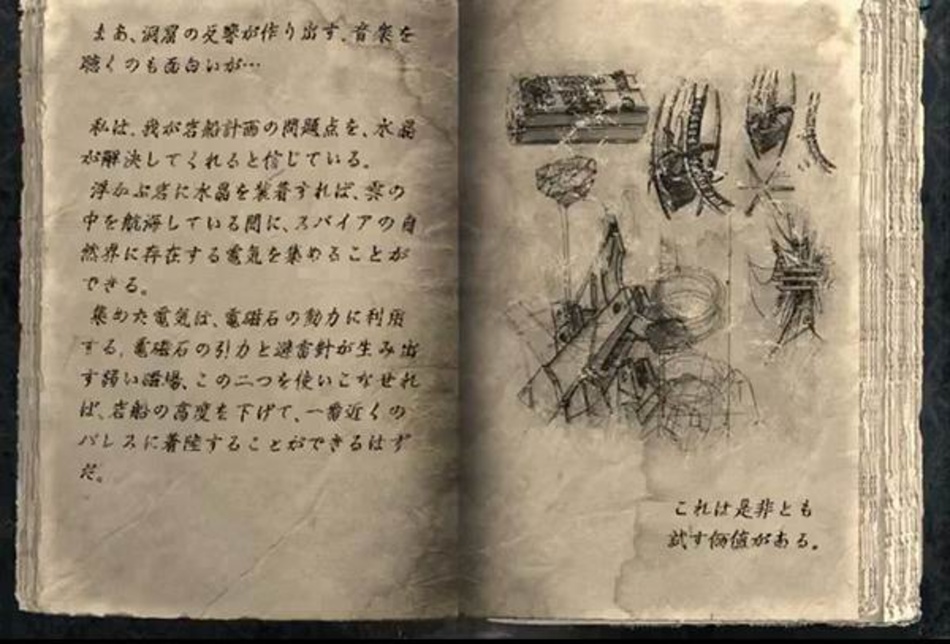 まあ、洞窟の反響が作り出す、音楽を
聴くのも面白いが…
私は、我が岩船計画の問題点を、水晶
が解決してくれると信じている。
浮かぶ岩に水晶を装着すれば、雲の
中を航海している間に、スパイアの自
然界に存在する電気を集めることが
できる。
集めた電気は、電磁石の動力に利用
する。電磁石の引力と避雷針が生み出
す弱い磁場、この二つを使いこなせれ
ば、岩船の高度を下げて、一番近くの
パレスに着陸することができるはず
だ。
これは是非とも
試す価値がある。